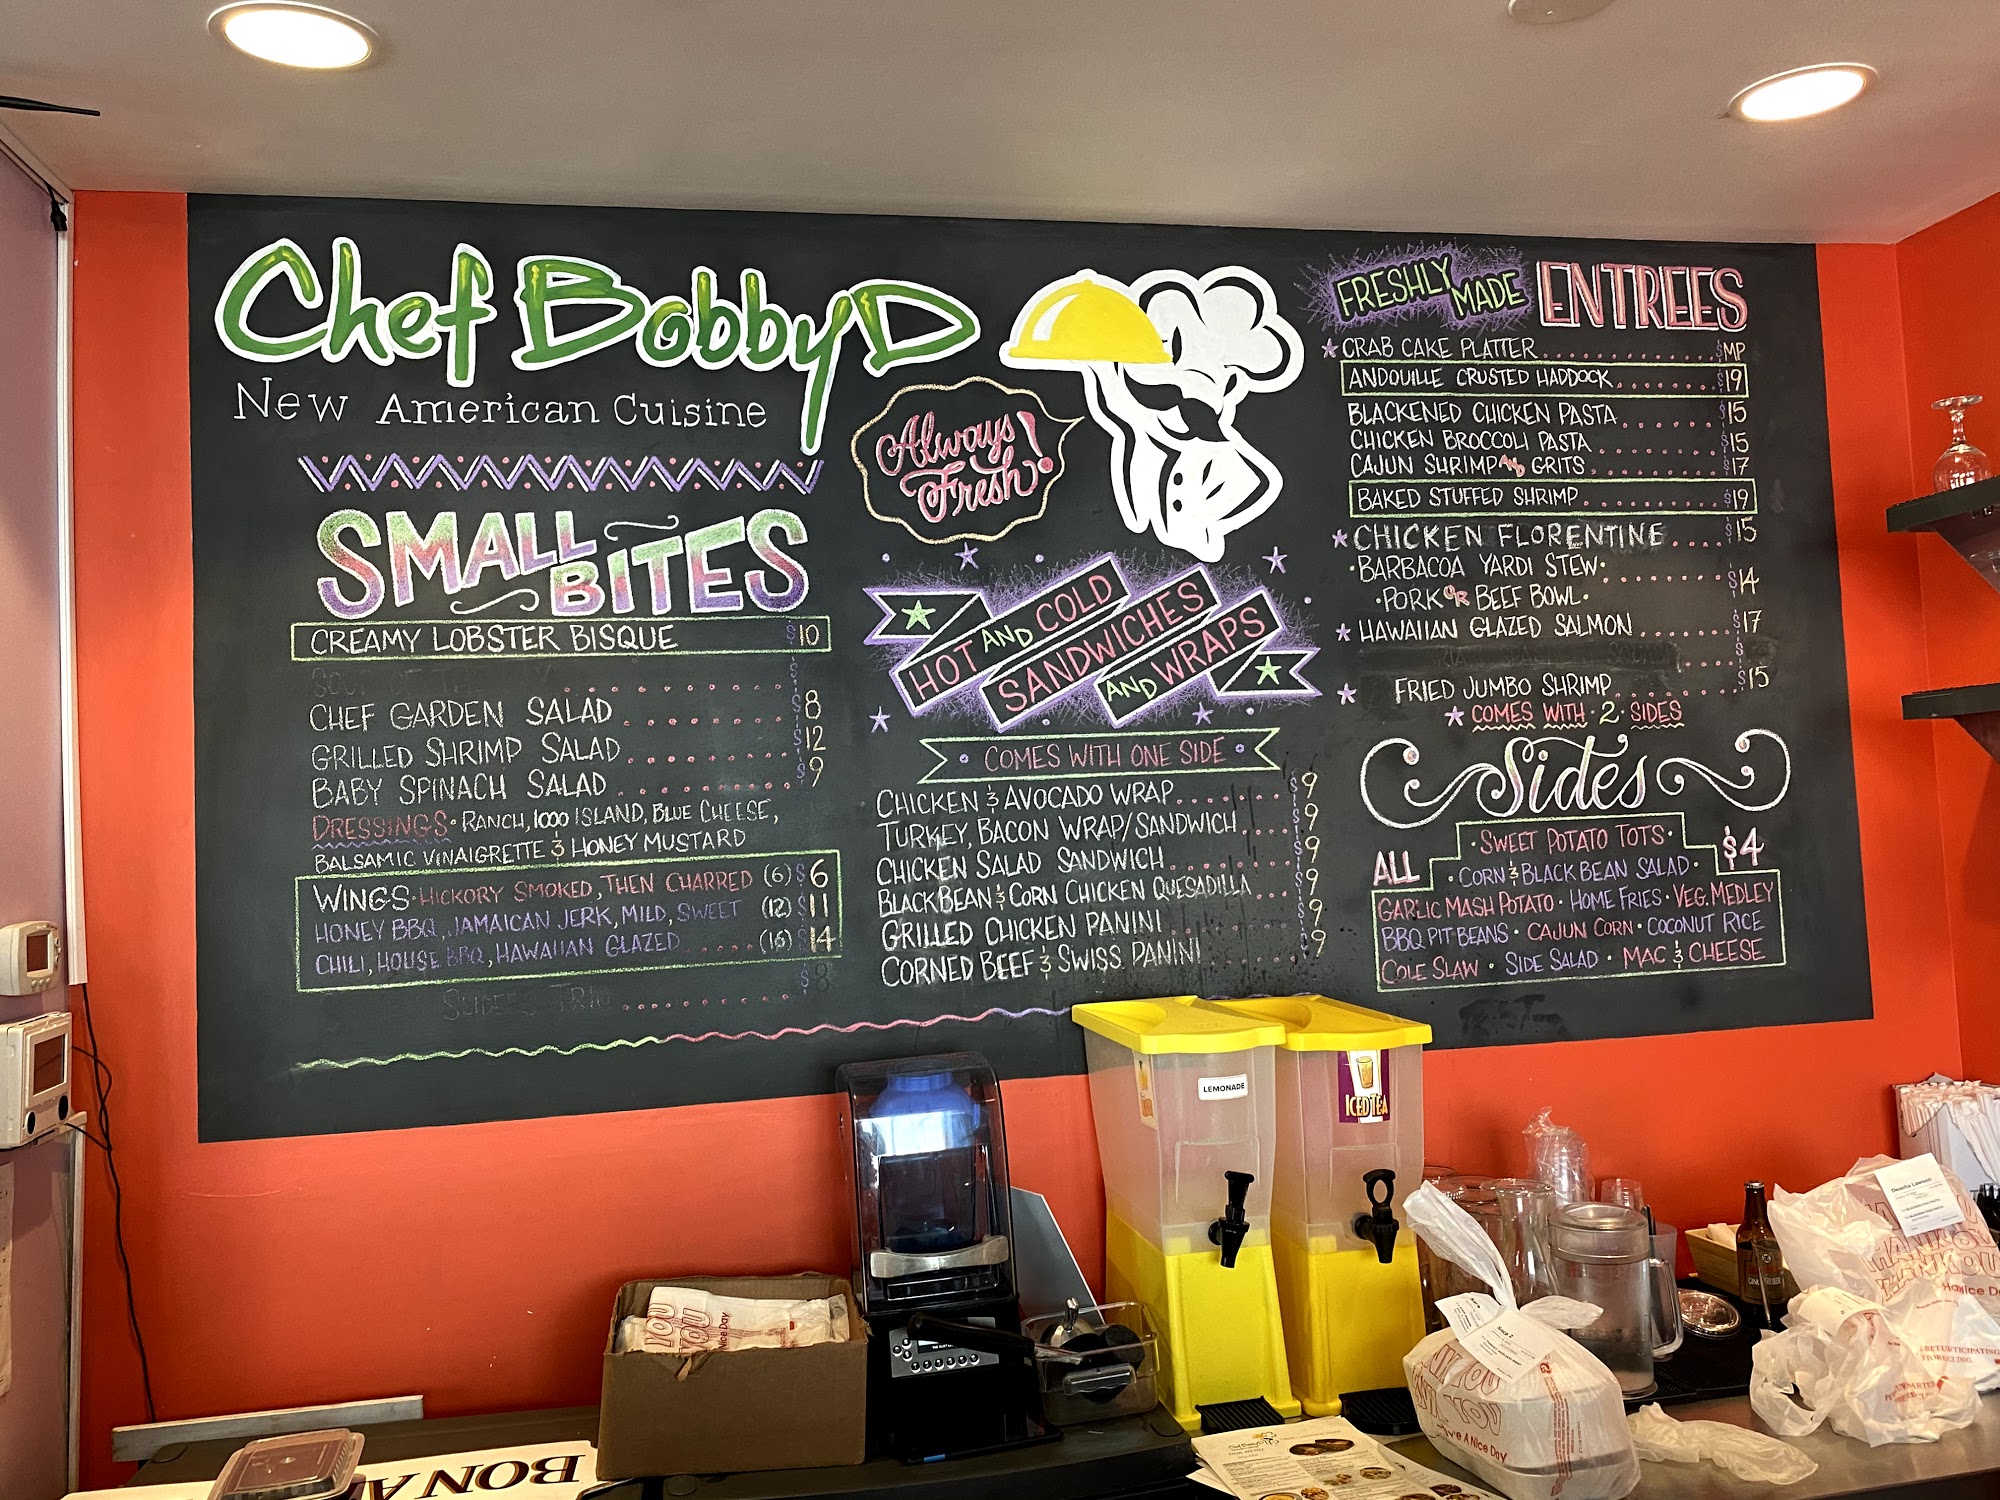 Chef Bobby D
New American Cuisine
Always
Fresh!
SMALL BITES
CREAMY LOBSTER BISQUE $10
SOUP OF THE
CHEF GARDEN SALAD $8
GRILLED SHRIMP SALAD $12
BABY SPINACH SALAD $9
DRESSINGS • RANCH, 1000 ISLAND, BLUE CHEESE,
BALSAMIC VINAIGRETTE & HONEY MUSTARD
WINGS • HICKORY SMOKED, THEN CHARRED (6) $6
HONEY BBQ, JAMAICAN JERK, MILD, SWEET (12) $11
CHILI, HOUSE BBQ, HAWAIIAN GLAZED (16) $14
SLIDERS TRIO $8
HOT AND COLD
SANDWICHES
AND WRAPS
• COMES WITH ONE SIDE •
CHICKEN & AVOCADO WRAP $9
TURKEY, BACON WRAP/SANDWICH $9
CHICKEN SALAD SANDWICH $9
BLACK BEAN & CORN CHICKEN QUESADILLA $9
GRILLED CHICKEN PANINI $9
CORNED BEEF & SWISS PANINI $9
FRESHLY MADE ENTREES
CRAB CAKE PLATTER $MP
ANDOUILLE CRUSTED HADDOCK $19
BLACKENED CHICKEN PASTA $15
CHICKEN BROCCOLI PASTA $15
CAJUN SHRIMP AND GRITS $17
BAKED STUFFED SHRIMP $19
CHICKEN FLORENTINE $15
• BARBACOA YARDI STEW •
• PORK OR BEEF BOWL • $14
HAWAIIAN GLAZED SALMON $17
FRIED JUMBO SHRIMP $15
COMES WITH • 2 • SIDES
Sides
ALL $4
• SWEET POTATO TOTS •
• CORN & BLACK BEAN SALAD •
GARLIC MASH POTATO • HOME FRIES • VEG. MEDLEY
BBQ PIT BEANS • CAJUN CORN • COCONUT RICE
COLE SLAW • SIDE SALAD • MAC & CHEESE
LEMONADE
ICED TEA
YOU
YOU
Nice Day
BON A
THANK YOU
Have A Nice Day